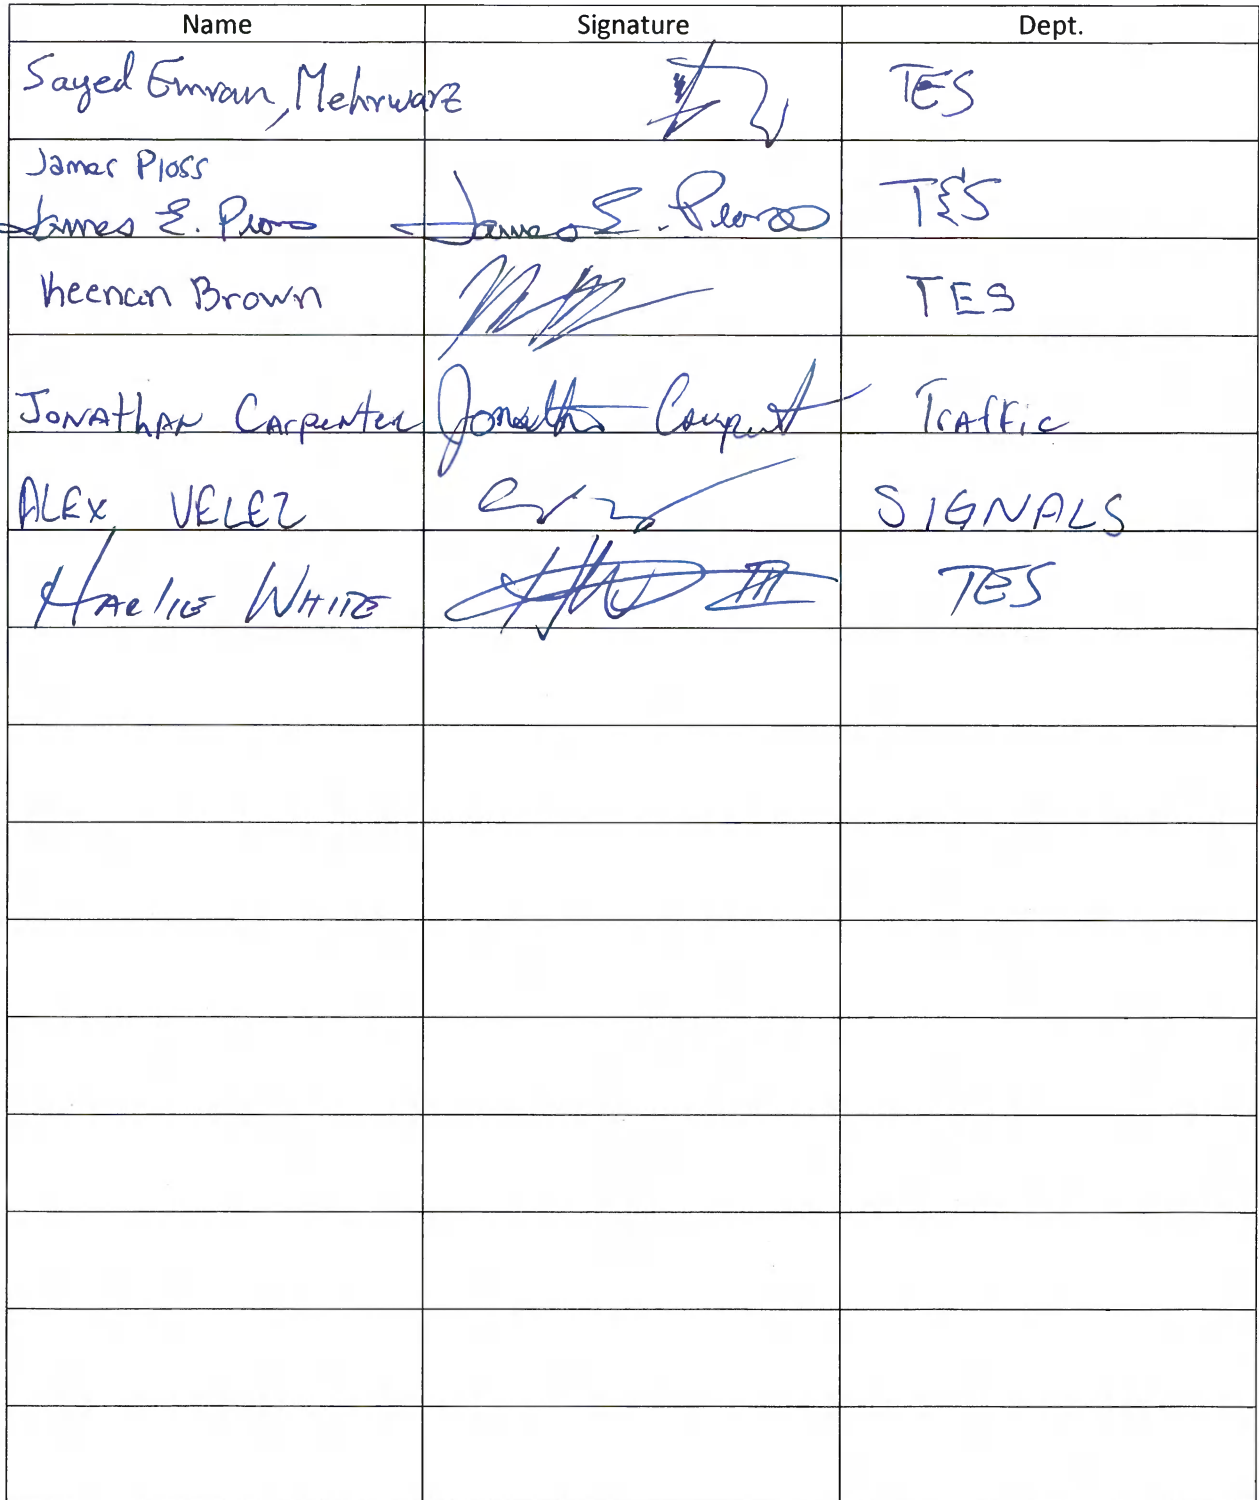 Name Signature Dept.
Sayed Emran, Mehrwarz TES
James Ploss
James E. Ploss James E. Ploss T&S
Keenan Brown TES
Jonathan Carpenter Jonathan Carpent Traffic
ALEX VELEZ SIGNALS
HARlIE WHITE III TES